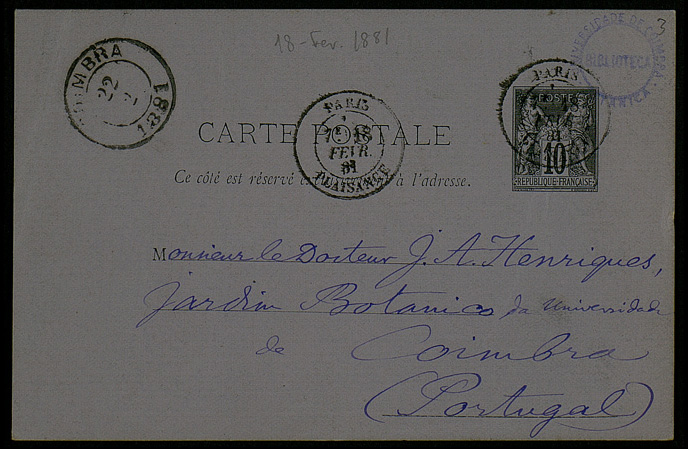 18-Fev. 1881
3
COIMBRA
22
2
1881
UNIVERSIDADE DE COIMBRA
BIBLIOTECA
BOTANICA
PARIS
18
FEVR.
81
PLAISANCE
PARIS
81
POSTES
10
REPUBLIQUE FRANÇAISE
CARTE POSTALE
Ce côté est réservé exclusivement à l'adresse.
Monsieur le Docteur J. A. Henriques,
Jardim Botanico da Universidade
de Coimbra
(Portugal)